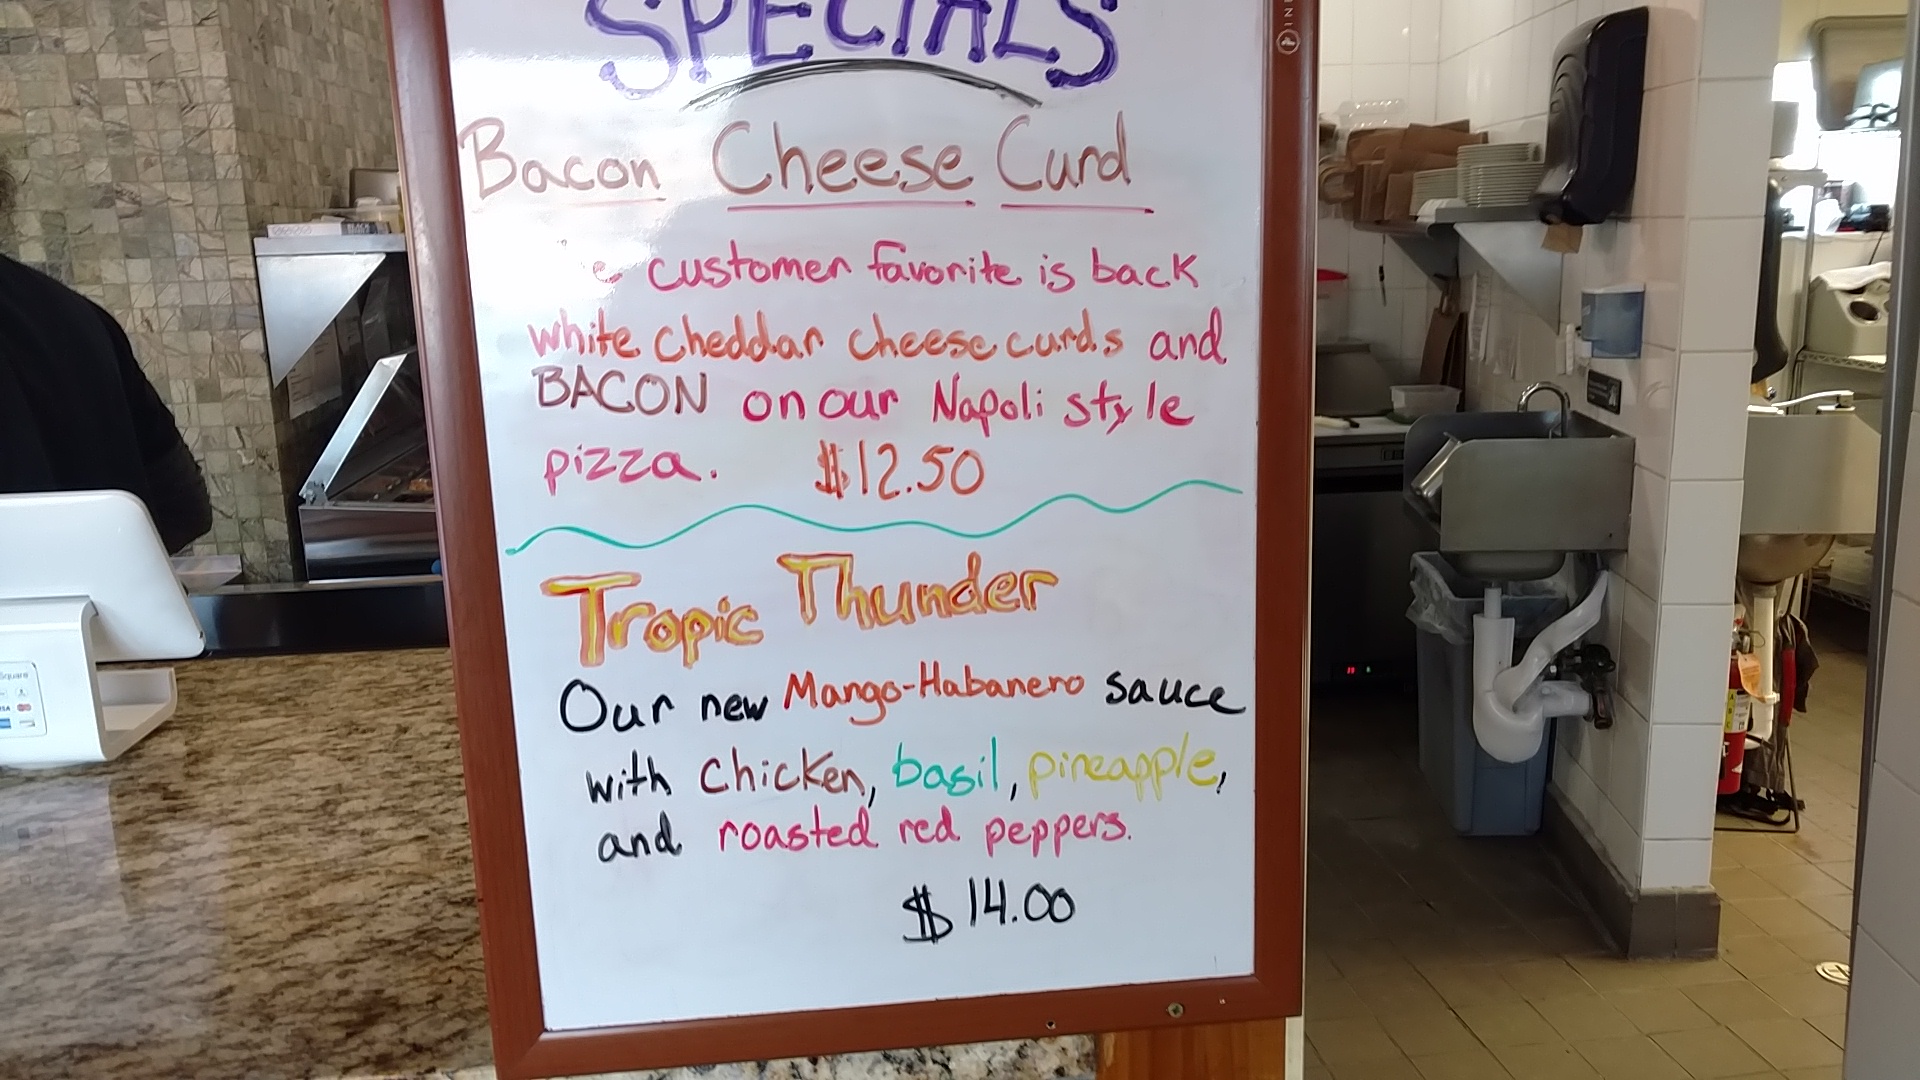 SPECIALS
Bacon Cheese Curd
customer favorite is back
white cheddar cheese curds and
BACON on our Napoli style
pizza. $12.50
Tropic Thunder
Our new Mango-Habanero sauce
with chicken, basil, pineapple,
and roasted red peppers.
$14.00
Square
VISA